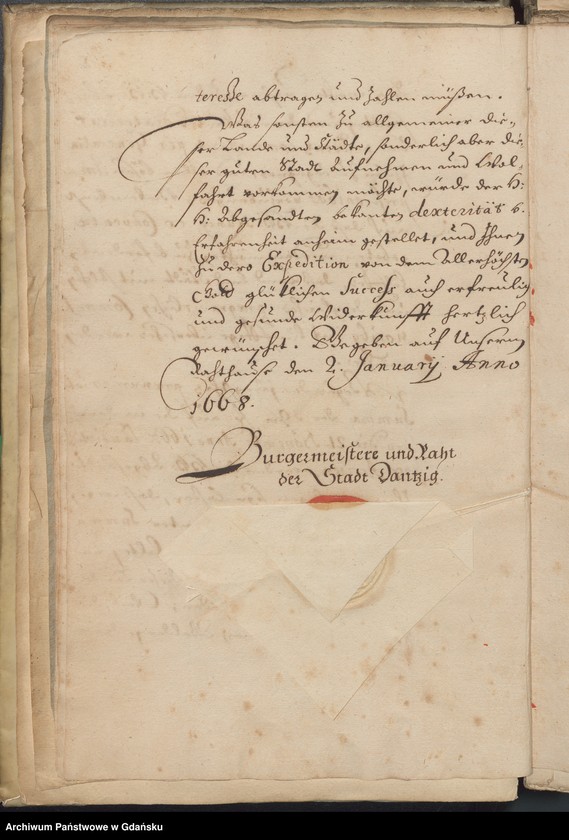 teresse abtragen und zahlen müßen.
Was sonsten zu allgemeiner die-
ser Lande und Städte, sonderlich aber die-
ser guten Stadt Aufnehmen und Wol-
fahrt vorkommen möchte, würde der H:
H: Abgesandten bekanten dexterität v.
Erfahrenheit anheim gestellet, und Ihnen
zu dero Expedition von dem Allerhöchsten
Gott glüklichen Success auch erfreulich
und gesunde Widerkunfft hertzlich
gewünschet. Gegeben auf Unserm
Rahthause den 2. January Anno
1668.
Burgermeistere und Raht
der Stadt Dantzig.
Archiwum Państwowe w Gdańsku